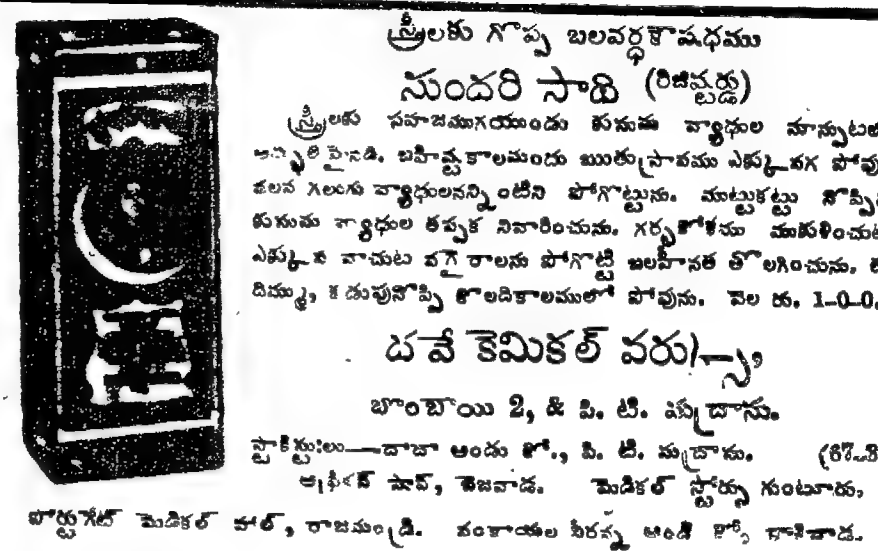 స్త్రీలకు గొప్ప బలవర్ధకౌషధము
సుందరి సాథి (రిజిష్టర్డు)
స్త్రీలకు సహజముగయుండు కుసుమ వ్యాధుల మాన్పుటకు
బహిష్టకాలమందు ఋతుస్రావము ఎక్కువగ పోవు
వలన గలుగు వ్యాధులనన్నింటిని పోగొట్టును. ముట్టుకట్టు నొప్పి
కుసుమ వ్యాధుల తప్పక నివారించును. గర్భకోశము ముకుళించుట
ఎక్కువ వాచుట వగైరాలను పోగొట్టి బలహీనత తొలగించును.
దిమ్ము, కడుపునొప్పి కొలదికాలములో పోవును. వెల రు. 1-0-0.
దవే కెమికల్ వర్క్సు,
బొంబాయి 2, & పి. టి. మద్రాసు.
స్టాకిష్టులు—దాబా అండు కో., పి. టి. మద్రాసు. (67-3
షాప్, బెజవాడ. మెడికల్ స్టోర్సు గుంటూరు,
ఫోర్టుగేట్ మెడికల్ హాల్, రాజమండ్రి. వంకాయల వీరన్న అండ్ కో కాకినాడ.